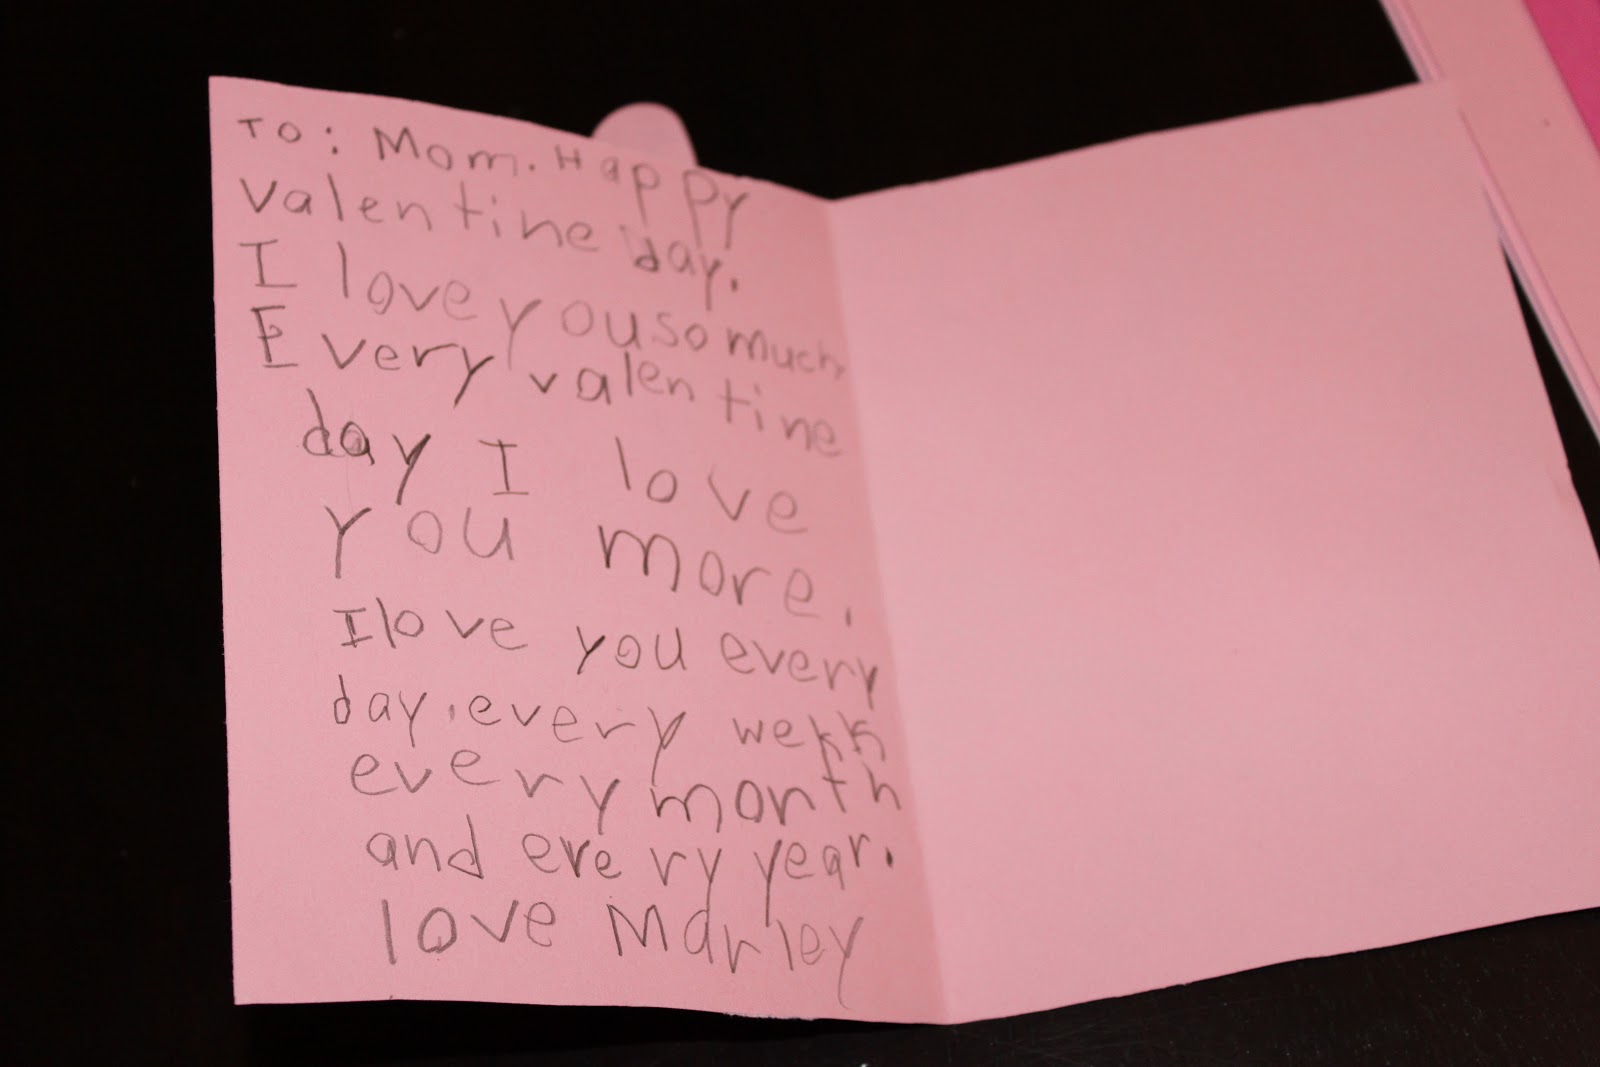 To: Mom. Happy
valentine day.
I love you so much,
Every valentine
day I love
you more.
I love you every
day. every wekk
every month
and every year.
love Marley